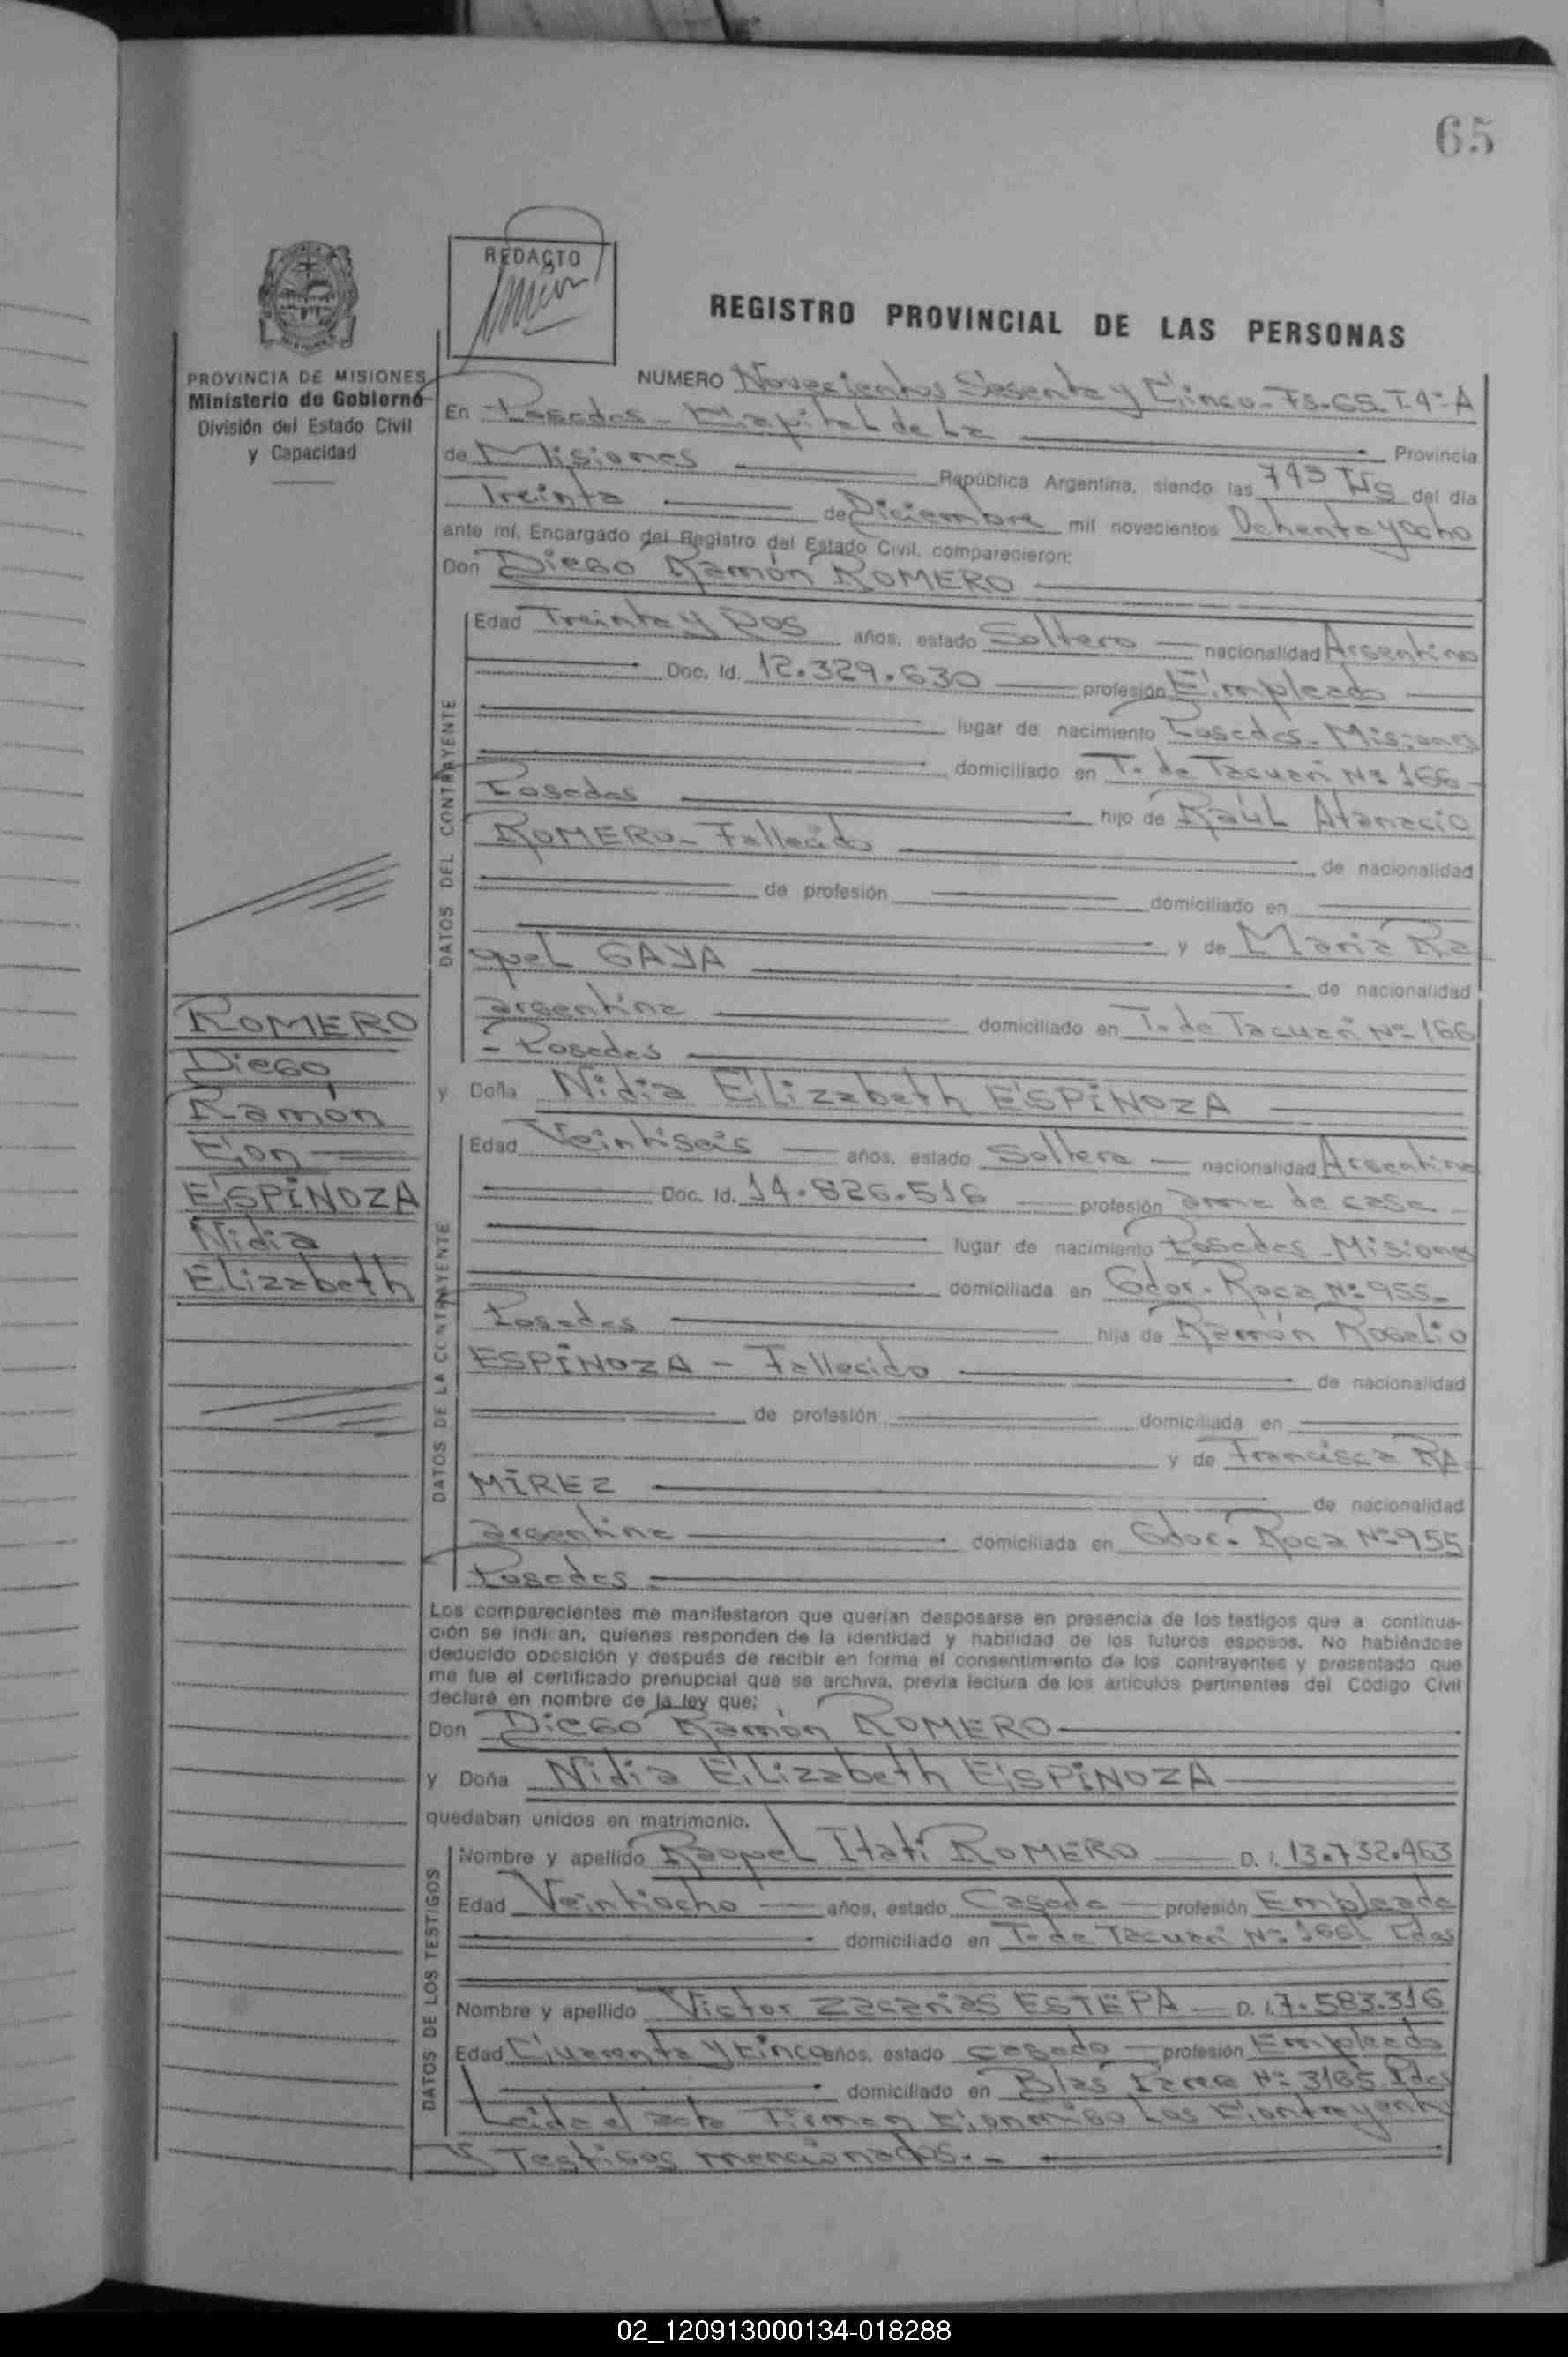 65
REDACTO
REGISTRO PROVINCIAL DE LAS PERSONAS
PROVINCIA DE MISIONES
Ministerio de Gobierno
División del Estado Civil
y Capacidad
NUMERO Novecientos Sesenta y Cinco - Fs. 65. T. 4º. A
En - Posadas - Capital de La Provincia
de Misiones República Argentina, siendo las 745 Hs del día
Treinta de Diciembre mil novecientos Ochenta y ocho
ante mí, Encargado del Registro del Estado Civil, comparecieron:
Don Diego Ramón ROMERO
DATOS DEL CONTRAYENTE
Edad Treinta y Dos años, estado Soltero nacionalidad Argentino
Doc. Id. 12.329.630 profesión Empleado
lugar de nacimiento Posadas - Misiones
domiciliado en T. de Tacuarí Nº 166 -
Posadas hijo de Raúl Atanacio
ROMERO - Fallecido de nacionalidad
de profesión domiciliado en
y de María Ra-
quel GAYA de nacionalidad
argentina domiciliado en T. de Tacuarí Nº 166
- Posadas
y Doña Nidia Elizabeth ESPINOZA
ROMERO
Diego
Ramón
Con
ESPINOZA
Nidia
Elizabeth
DATOS DE LA CONTRAYENTE
Edad Veintiseis años, estado Soltera nacionalidad Argentina
Doc. Id. 14.826.516 profesión ama de casa
lugar de nacimiento Posadas - Misiones
domiciliada en Gdor. Roca Nº 955 -
Posadas hija de Ramón Rogelio
ESPINOZA - Fallecido de nacionalidad
de profesión domiciliada en
y de Francisca RA-
MIREZ de nacionalidad
argentina domiciliada en Gdor. Roca Nº 955
Posadas
Los comparecientes me manifestaron que querían desposarse en presencia de los testigos que a continua-
ción se indican, quienes responden de la identidad y habilidad de los futuros esposos. No habiéndose
deducido oposición y después de recibir en forma el consentimiento de los contrayentes y presentado que
me fue el certificado prenupcial que se archiva, previa lectura de los artículos pertinentes del Código Civil
declaré en nombre de la ley que:
Don Diego Ramón ROMERO
y Doña Nidia Elizabeth ESPINOZA
quedaban unidos en matrimonio.
DATOS DE LOS TESTIGOS
Nombre y apellido Raquel Itatí ROMERO D. I. 13.732.463
Edad Veintiocho años, estado Casada profesión Empleada
domiciliado en T. de Tacuarí Nº 166 Pdas
Nombre y apellido Victor Zacarías ESTEPA D. I. 7.583.316
Edad Cuarenta y Cinco años, estado casado profesión Empleado
domiciliado en Blas Parera Nº 3165. Pdas
Leída el acta Firman Conmigo Los Contrayentes
y Testigos mencionados. -
02_120913000134-018288